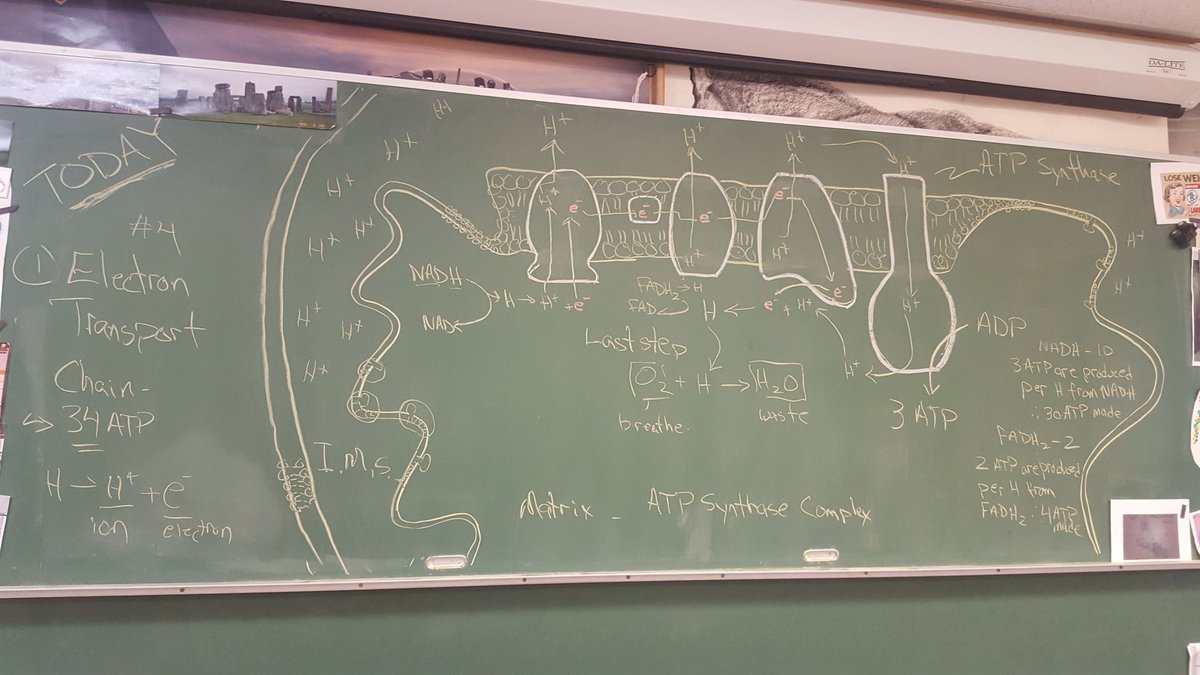 TODAY
#4
① Electron
Transport
Chain-
↪ 34 ATP
H → H⁺ + e⁻
ion electron
H⁺
H⁺
H⁺
H⁺
H⁺
H⁺
H⁺
H⁺
I.M.S.
H⁺
H⁺
H⁺
H⁺
ATP Synthase
e⁻
e⁻
e⁻
e⁻
H⁺
H⁺
H⁺
H⁺
e⁻
NADH
NAD
H → H⁺ + e⁻
FADH₂ → H
FAD
H ← e⁻ + H⁺
H⁺
Last step
O₂ + H → H₂O
breathe. waste
ADP
3 ATP
Matrix - ATP Synthase Complex
H⁺
H⁺
NADH - 10
3 ATP are produced
per H from NADH
∴ 30 ATP made
FADH₂ - 2
2 ATP are produced
per H from
FADH₂ ∴ 4 ATP
made
DA-LITE
LOSE WEI